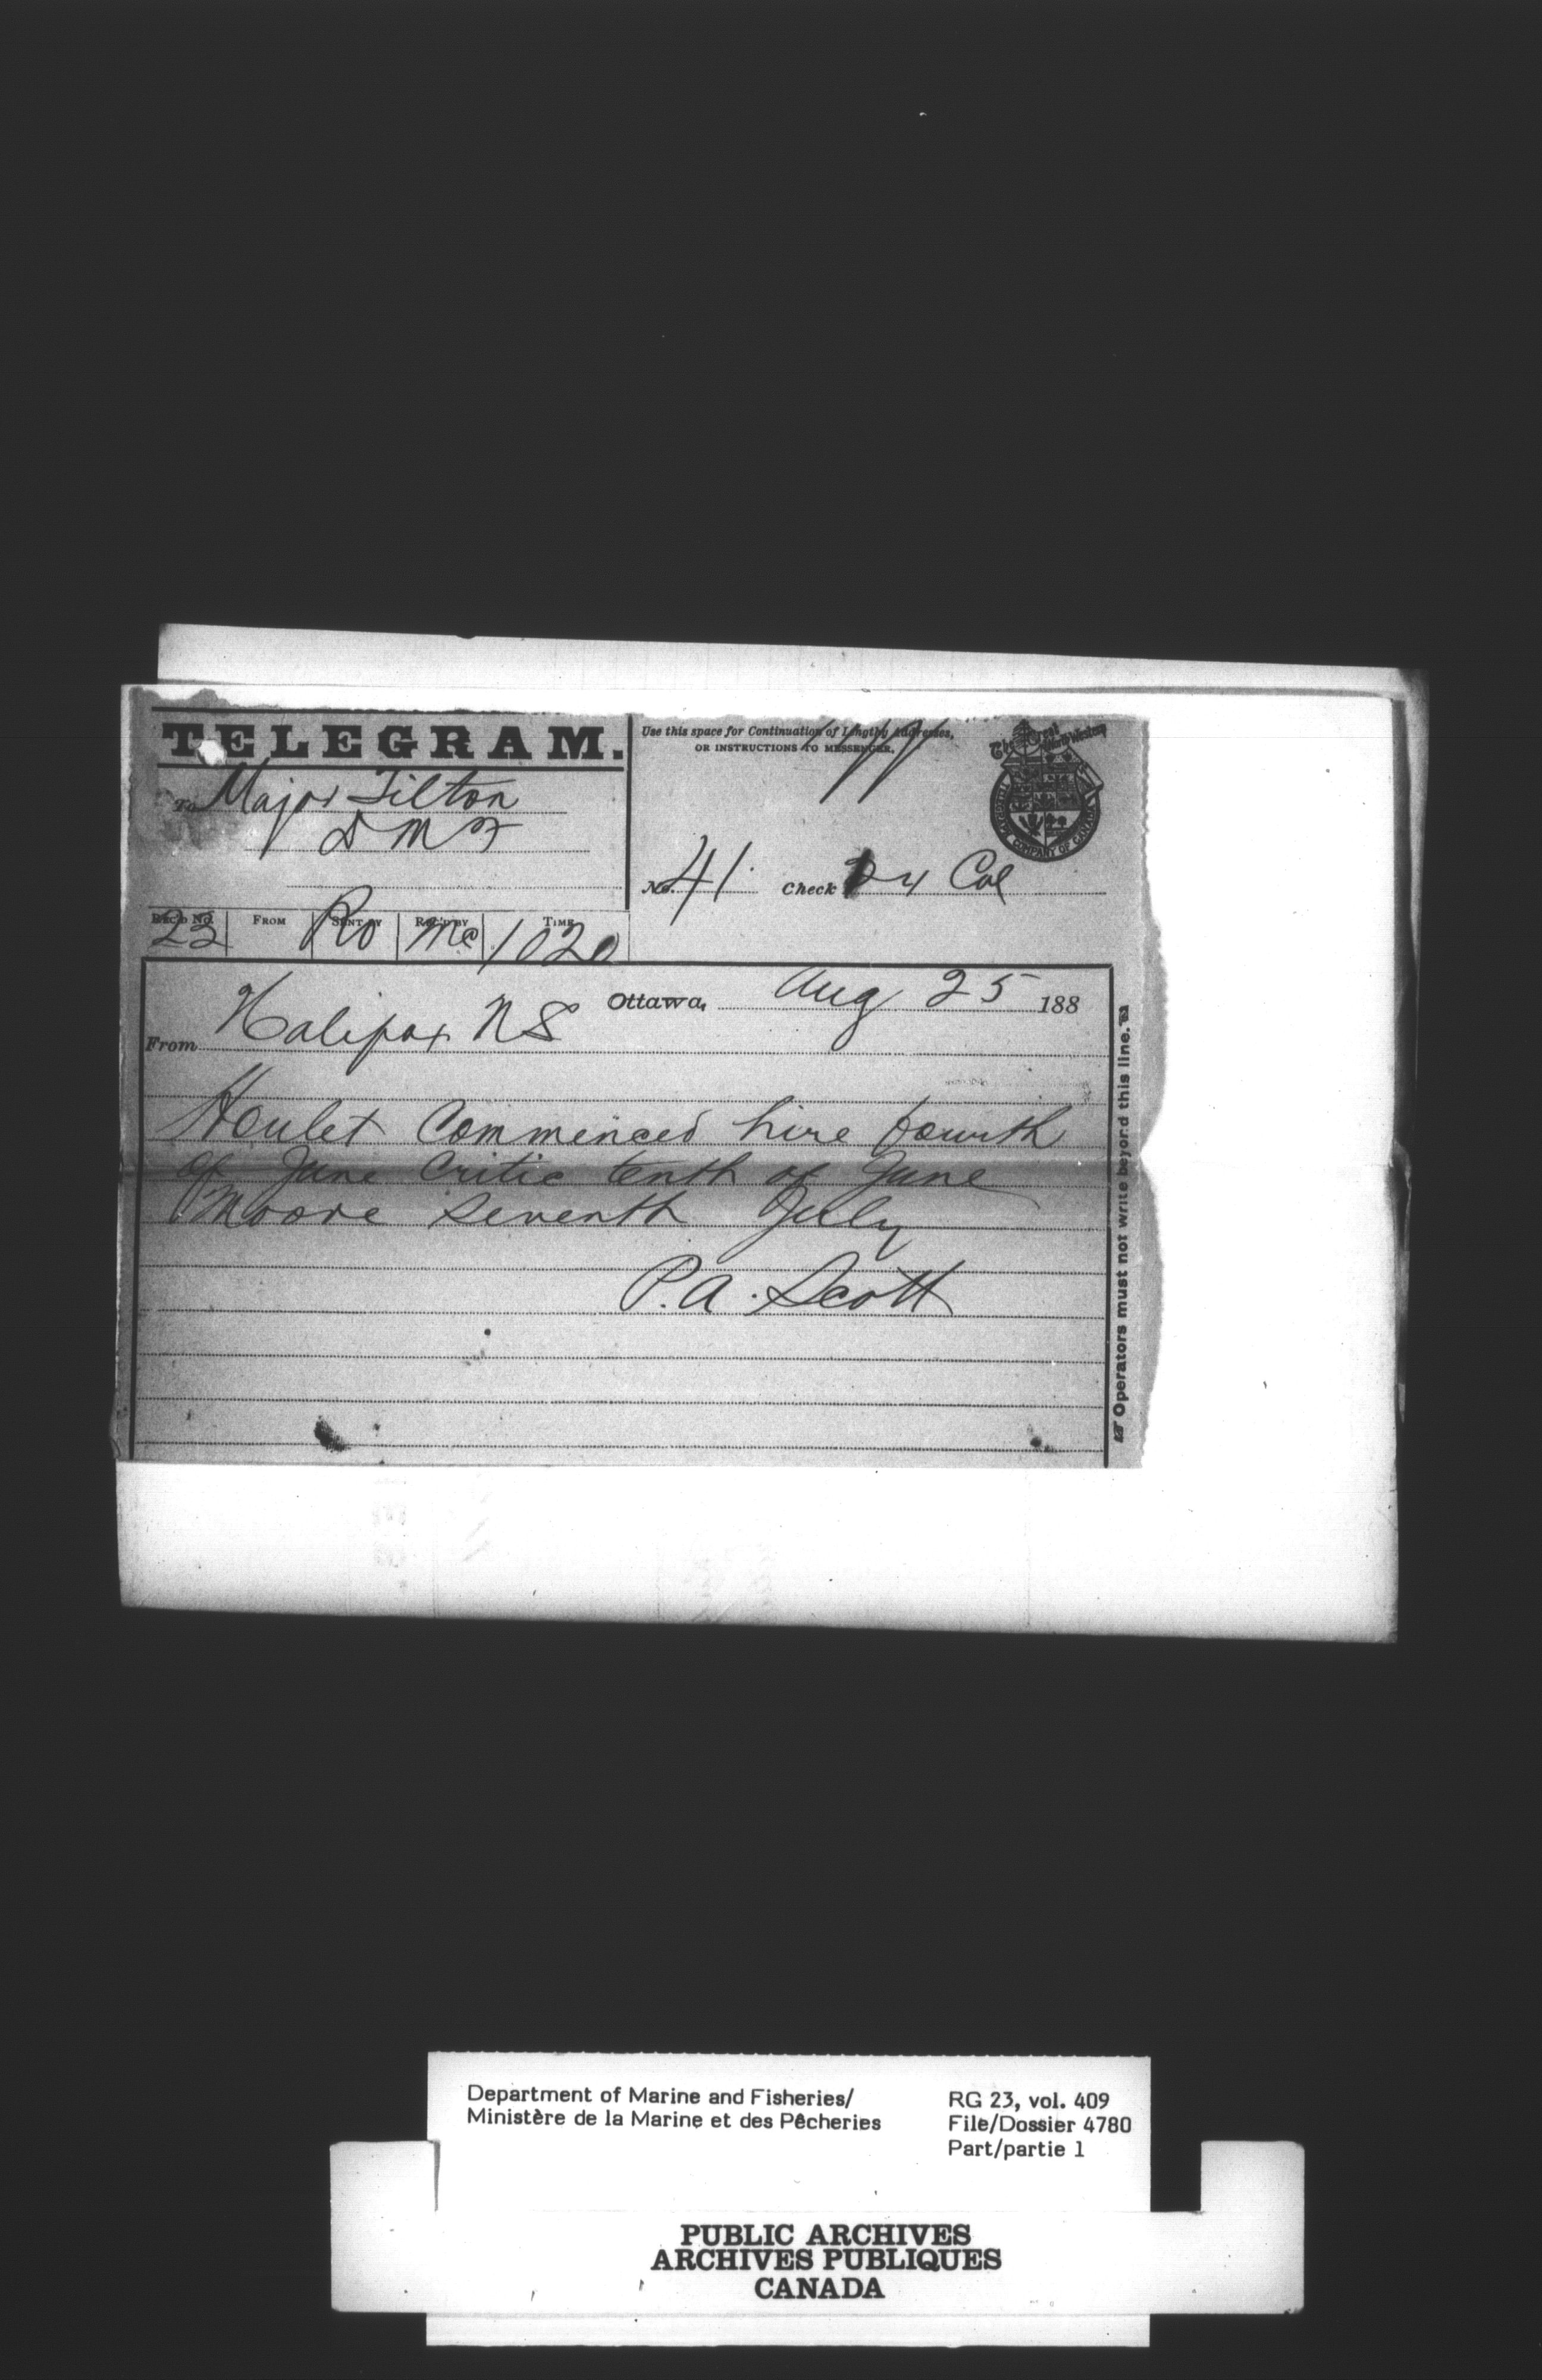 TELEGRAM.
Use this space for Continuation of Lengthy Addresses,
OR INSTRUCTIONS TO MESSENGER.
The Great North Western
TELEGRAPH COMPANY OF CANADA
To Major Tilton
D M F
No. 41 Check Col
REC'D No. FROM SENT BY REC'D BY TIME
23 Ro Mc 1020
Ottawa, Aug 25 188
From Halifax NS
Houlet Commenced hire fourth
of June Critic tenth of June
Moore Seventh July
P.A. Scott
Operators must not write beyond this line.
Department of Marine and Fisheries/
Ministère de la Marine et des Pêcheries
RG 23, vol. 409
File/Dossier 4780
Part/partie 1
PUBLIC ARCHIVES
ARCHIVES PUBLIQUES
CANADA